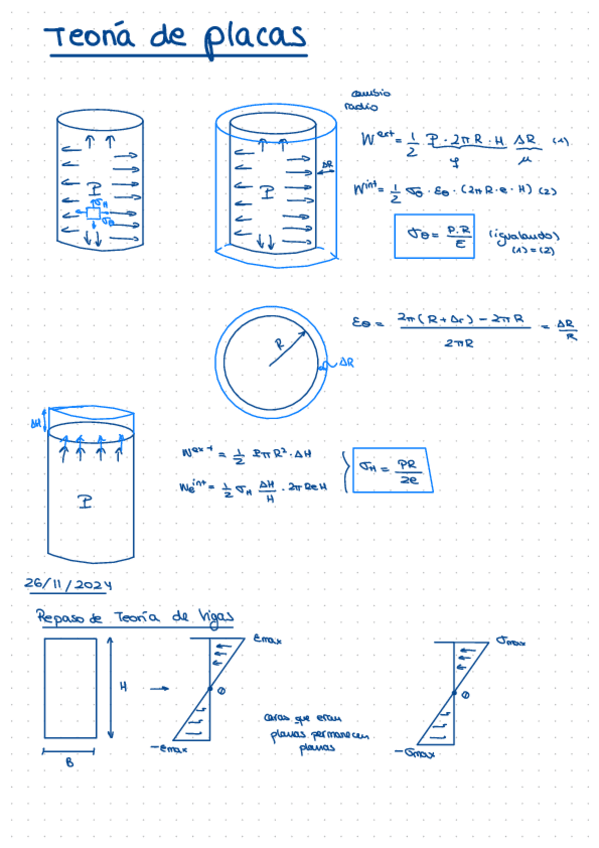 Teoría de placas
cambio
radio
W^ext = 1/2 P · 2πR · H ΔR (1)
φ μ
W^int = 1/2 σθ · εθ · (2πR · e · H) (2)
σθ = P.R/E (igualando)
(1) = (2)
P
σH
σθ
P
ΔR
εθ = 2π(R + Δr) − 2πR / 2πR = ΔR/R
R
ΔR
ΔH
P
W^ext = 1/2 PπR² · ΔH
We^int = 1/2 σH ΔH/H · 2πReH
σH = PR/2e
26/11/2024
Repaso de Teoría de vigas
εmax
σmax
H
θ
θ
caras que eran
planas permanecen
planas
−εmax
−σmax
B